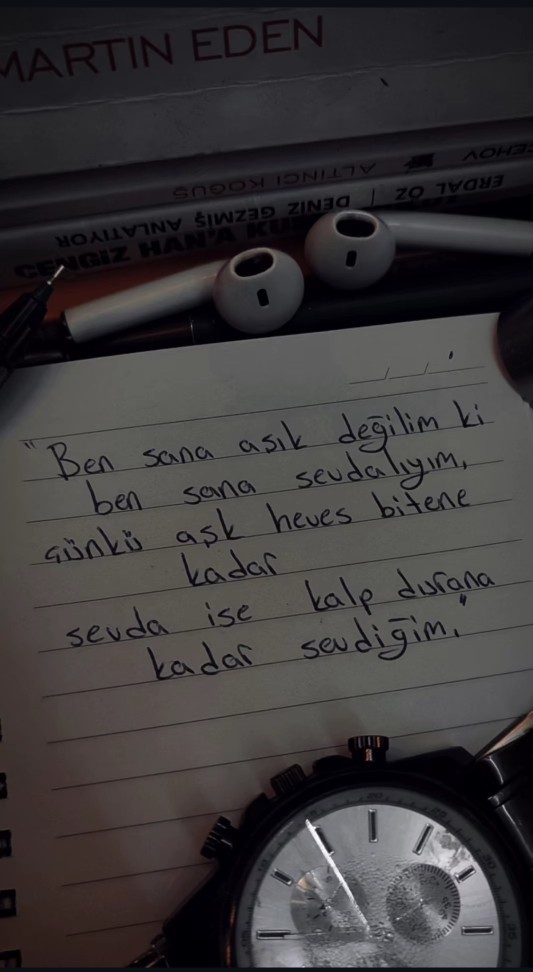 MARTIN EDEN
ÇEHOV
ALTINCI KOĞUŞ
ERDAL ÖZ | DENİZ GEZMİŞ ANLATIYOR
CENGİZ HAN'A
"Ben sana aşık değilim ki
ben sana sevdalıyım,
çünkü aşk heves bitene
kadar
sevda ise kalp durana
kadar sevdiğim."